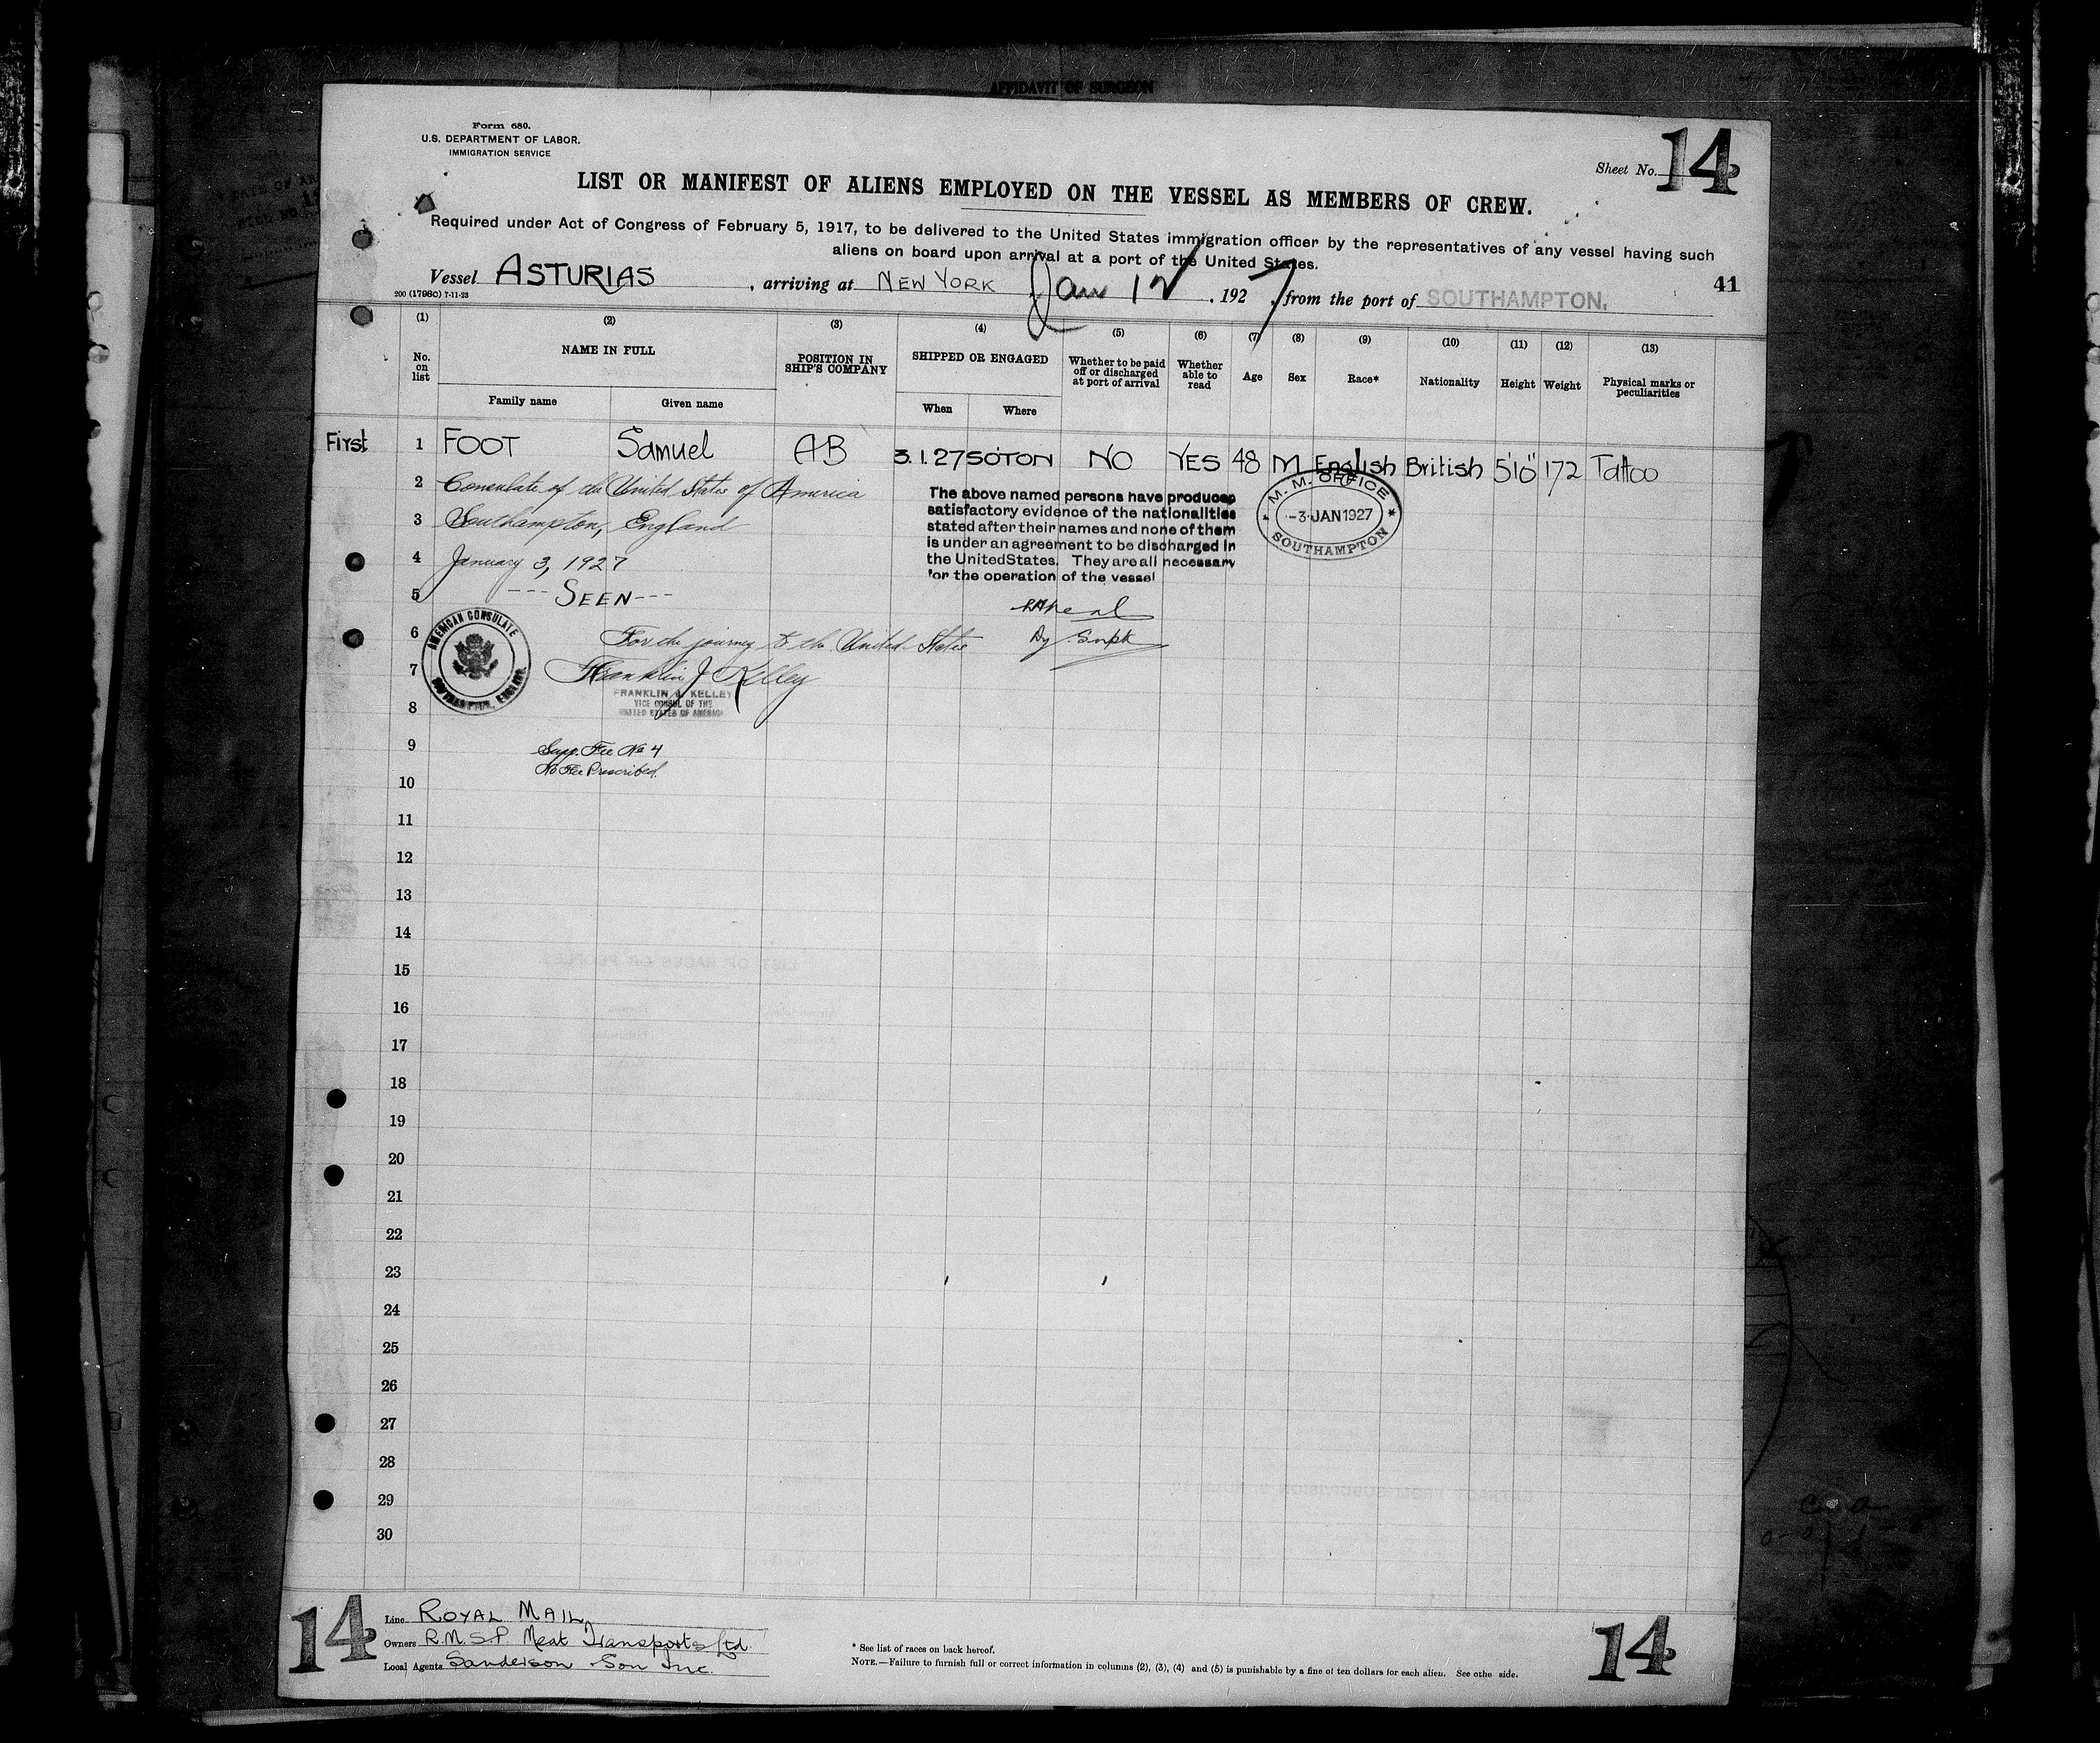 AFFIDAVIT OF SURGEON
Form 680.
U.S. DEPARTMENT OF LABOR.
IMMIGRATION SERVICE
Sheet No. 14
LIST OR MANIFEST OF ALIENS EMPLOYED ON THE VESSEL AS MEMBERS OF CREW.
Required under Act of Congress of February 5, 1917, to be delivered to the United States immigration officer by the representatives of any vessel having such
aliens on board upon arrival at a port of the United States.
Vessel ASTURIAS, arriving at NEW YORK Jan 12, 1927, from the port of SOUTHAMPTON.
41
200 (1798C) 7-11-23
(1) (2) (3) (4) (5) (6) (7) (8) (9) (10) (11) (12) (13)
No. on list
NAME IN FULL
Family name Given name
POSITION IN SHIP'S COMPANY
SHIPPED OR ENGAGED
When Where
Whether to be paid off or discharged at port of arrival
Whether able to read
Age Sex Race* Nationality Height Weight
Physical marks or peculiarities
First 1 FOOT Samuel AB 3.1.27 SOTON NO YES 48 M English British 5'10" 172 Tattoo
2 Consulate of the United States of America
3 Southampton, England
4 January 3, 1927
5 ---SEEN---
6 For the journey to the United States
7 Franklin J Kelley
FRANKLIN J. KELLEY
VICE CONSUL OF THE
UNITED STATES OF AMERICA
8
9 Supp. Fee No 4
No Fee Prescribed.
AMERICAN CONSULATE
SOUTHAMPTON, ENGLAND
The above named persons have produced
satisfactory evidence of the nationalities
stated after their names and none of them
is under an agreement to be discharged in
the United States. They are all necessary
for the operation of the vessel
Dy. Supt
M. M. OFFICE
-3 JAN 1927
SOUTHAMPTON
10
11
12
13
14
15
16
17
18
19
20
21
22
23
24
25
26
27
28
29
30
14
Line ROYAL MAIL
Owners R.M.S.P. Meat Transports Ltd.
Local Agents Sanderson Son Inc.
* See list of races on back hereof.
NOTE.—Failure to furnish full or correct information in columns (2), (3), (4) and (5) is punishable by a fine of ten dollars for each alien. See othe side.
14